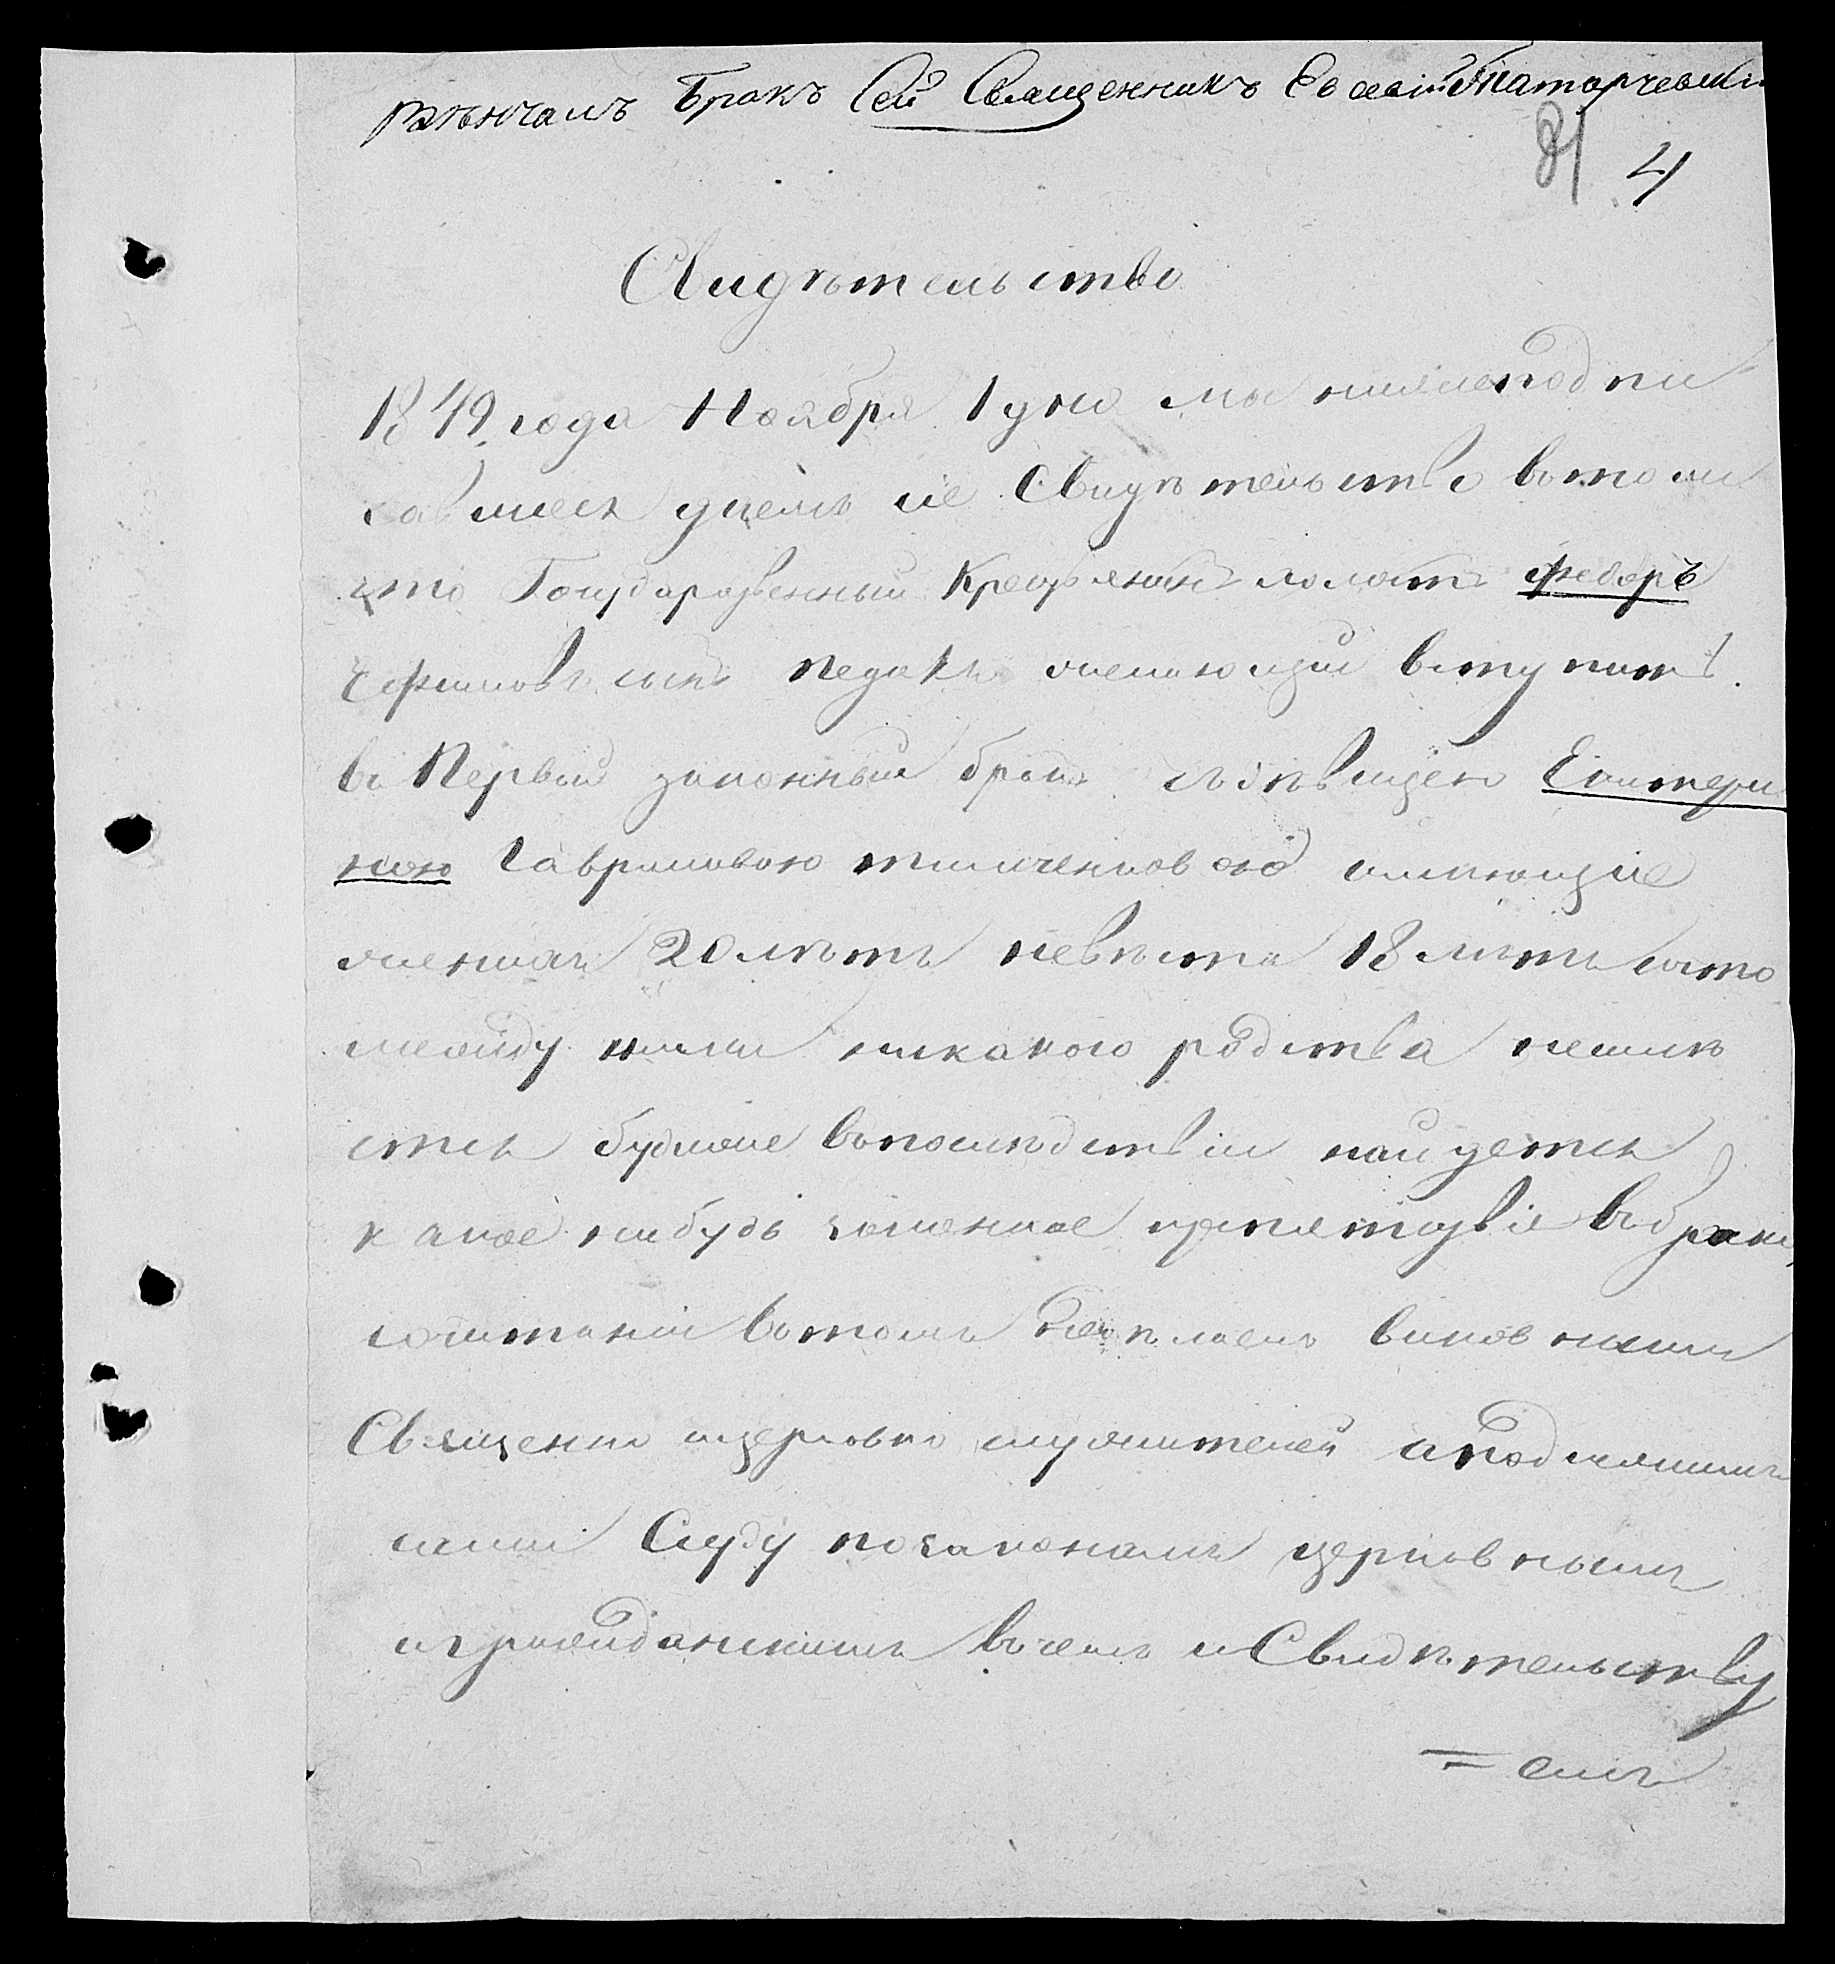 вѣнчалъ Бракъ Сей Священникъ Евсевій Татарчевскій
4
Свидѣтельство
1849 года Ноября 1 дня мы нижеподпи
савшеся даемъ сіе Свидѣтельство втомъ
что Государственный Крестьянинъ холостъ Федоръ
Ефимовъ сынъ Педакъ желающій вступить
въ Первый законный бракъ съ дѣвицею Екатери
ною Гавриловою имеющіе
женихъ 20 лѣтъ невѣста 18 лѣтъ что
между ними никакого родства неимѣ
ется будеже вопослѣдствіи найдется
какое нибудь законное препятствіе въ брако
сочитаніи вътомъ виновными
Священно ицерковно служителей аподлежимъ
сами Суду позаконамъ церковнымъ
игражданскимъ въчемъ и Свидѣтельству
= емъ